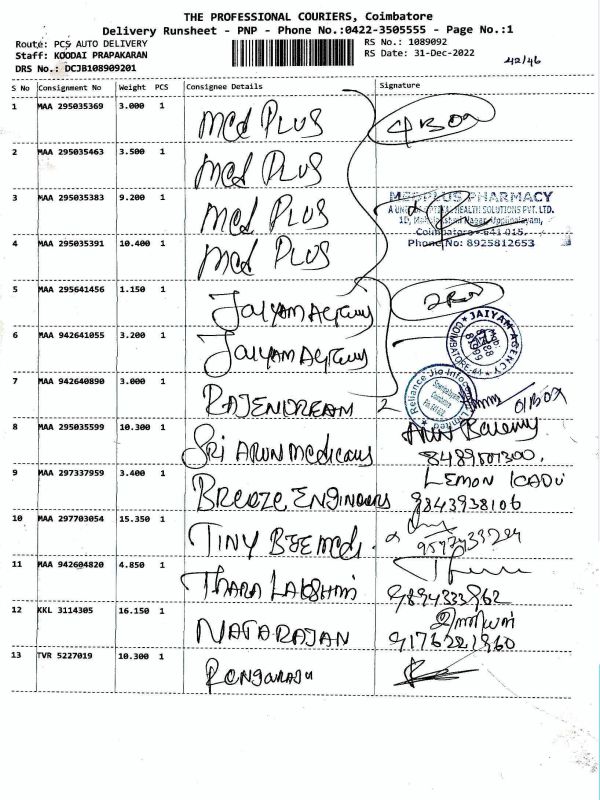 THE PROFESSIONAL COURIERS, Coimbatore
Delivery Runsheet - PNP - Phone No.:0422-3505555 - Page No.:1
Route: PCS AUTO DELIVERY
RS No.: 1089092
Staff: KOODAI PRAPAKARAN
RS Date: 31-Dec-2022
42/46
DRS No.: DCJB108909201
S No Consignment No Weight PCS Consignee Details Signature
1 MAA 295035369 3.000 1 Med PLUS 4 Box
2 MAA 295035463 3.500 1 Med PLUS
3 MAA 295035383 9.200 1 Med PLUS
MEDPLUS PHARMACY
HEALTH SOLUTIONS PVT. LTD.
4 MAA 295035391 10.400 1 Med PLUS
Coimbatore - 641 015.
Phone No: 8925812653
5 MAA 295641456 1.150 1 JAIYAM Agency 2 Box
6 MAA 942641055 3.200 1 JAIYAM Agency
JAIYAM AGENCY
COIMBATORE-41
7 MAA 942640890 3.000 1 RAJENDREAM 2
Reliance Jio Infocomm Limited
01 Box
8 MAA 295035599 10.300 1 SRI ARUN Medicals
9 MAA 297337959 3.400 1 BREEZE ENGINEERS
LEMON
9843938106
10 MAA 297703054 15.350 1 TINY
11 MAA 942604820 4.850 1 THARA LAKSHMI
9894333962
12 KKL 3114305 16.150 1 NATARAJAN
9176321960
13 TVR 5227019 10.300 1 RENGARAJU